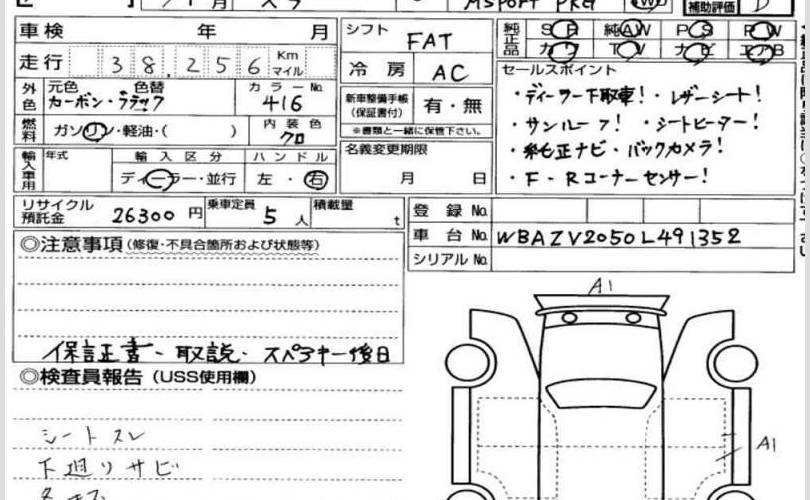 M SPORT PKG
補助評価 D
車検 年 月
シフト FAT
純正品 SH 純AW PS PW
カワ TV ナビ エアB
走行 38,256 Km マイル
冷房 AC
セールスポイント
外色 元色 色替 カラーNo.
カーボン・ブラック 416
新車整備手帳(保証書付) 有・無
※書類と一緒に保管下さい。
・ディーラー下取車! ・レザーシート!
・サンルーフ! ・シートヒーター!
・純正ナビ・バックカメラ!
・F・Rコーナーセンサー!
燃料 ガソリン・軽油・( ) 内装色 クロ
名義変更期限
月 日
輸入車用 年式 輸入区分 ハンドル
ディーラー・並行 左・右
リサイクル預託金 26300円 乗車定員 5人 積載量 t
登録No.
車台No. WBAZV2050L491352
シリアルNo.
◎注意事項(修復・不具合箇所および状態等)
保証正書・取説・スペアキー後日
◎検査員報告(USS使用欄)
シートスレ
下廻りサビ
A1
A1